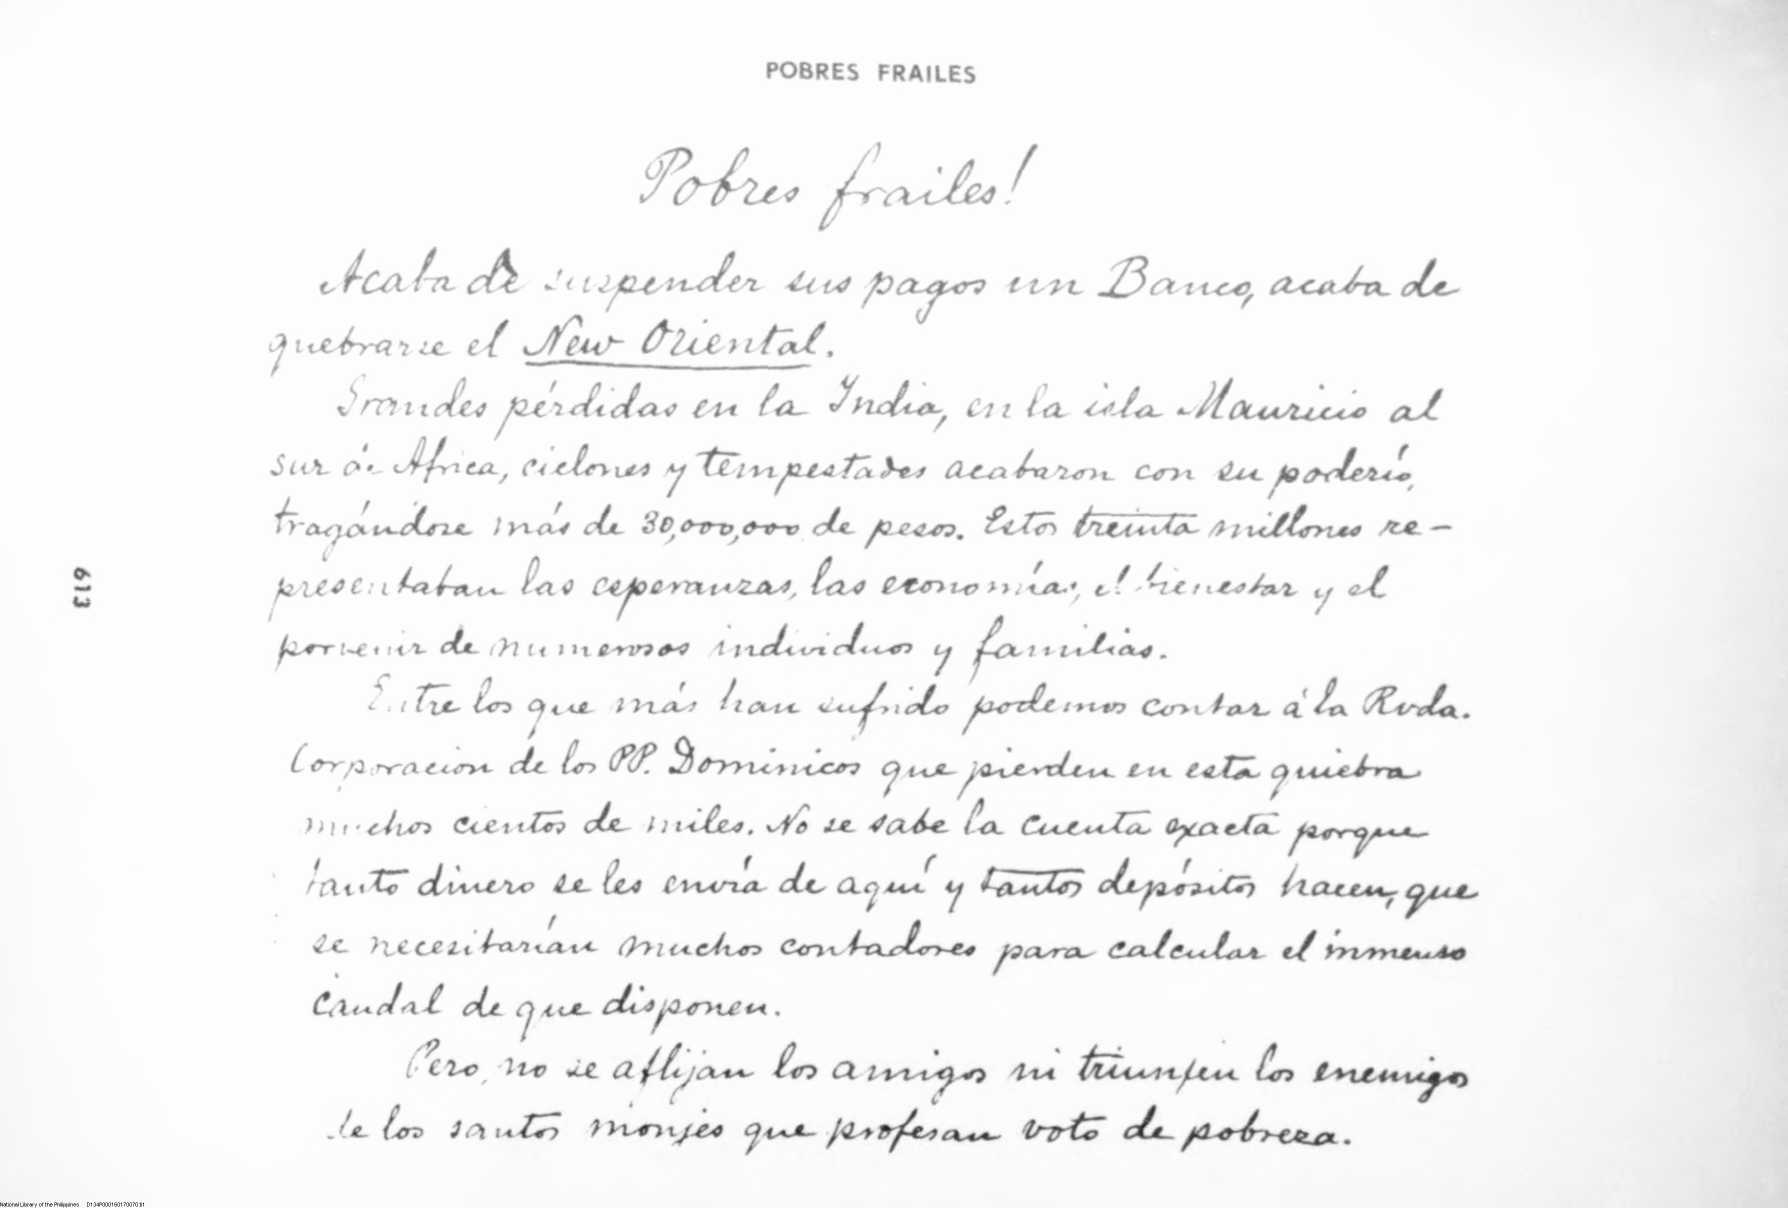 POBRES FRAILES
Pobres frailes!
Acaba de suspender sus pagos un Banco, acaba de
quebrarse el New Oriental.
Grandes pérdidas en la India, en la isla Mauricio al
sur de Africa, ciclones y tempestades acabaron con su poderío,
tragándose más de 30,000,000 de pesos. Estos treinta millones re-
presentaban las esperanzas, las economías, el bienestar y el
porvenir de numerosos individuos y familias.
Entre los que más han sufrido podemos contar á la Rvda.
Corporacion de los PP. Dominicos que pierden en esta quiebra
muchos cientos de miles. No se sabe la cuenta exacta porque
tanto dinero se les envía de aquí y tantos depósitos hacen, que
se necesitarían muchos contadores para calcular el inmenso
caudal de que disponen.
Pero, no se aflijan los amigos ni triunfen los enemigos
de los santos monjes que profesan voto de pobreza.
613
National Library of the Philippines